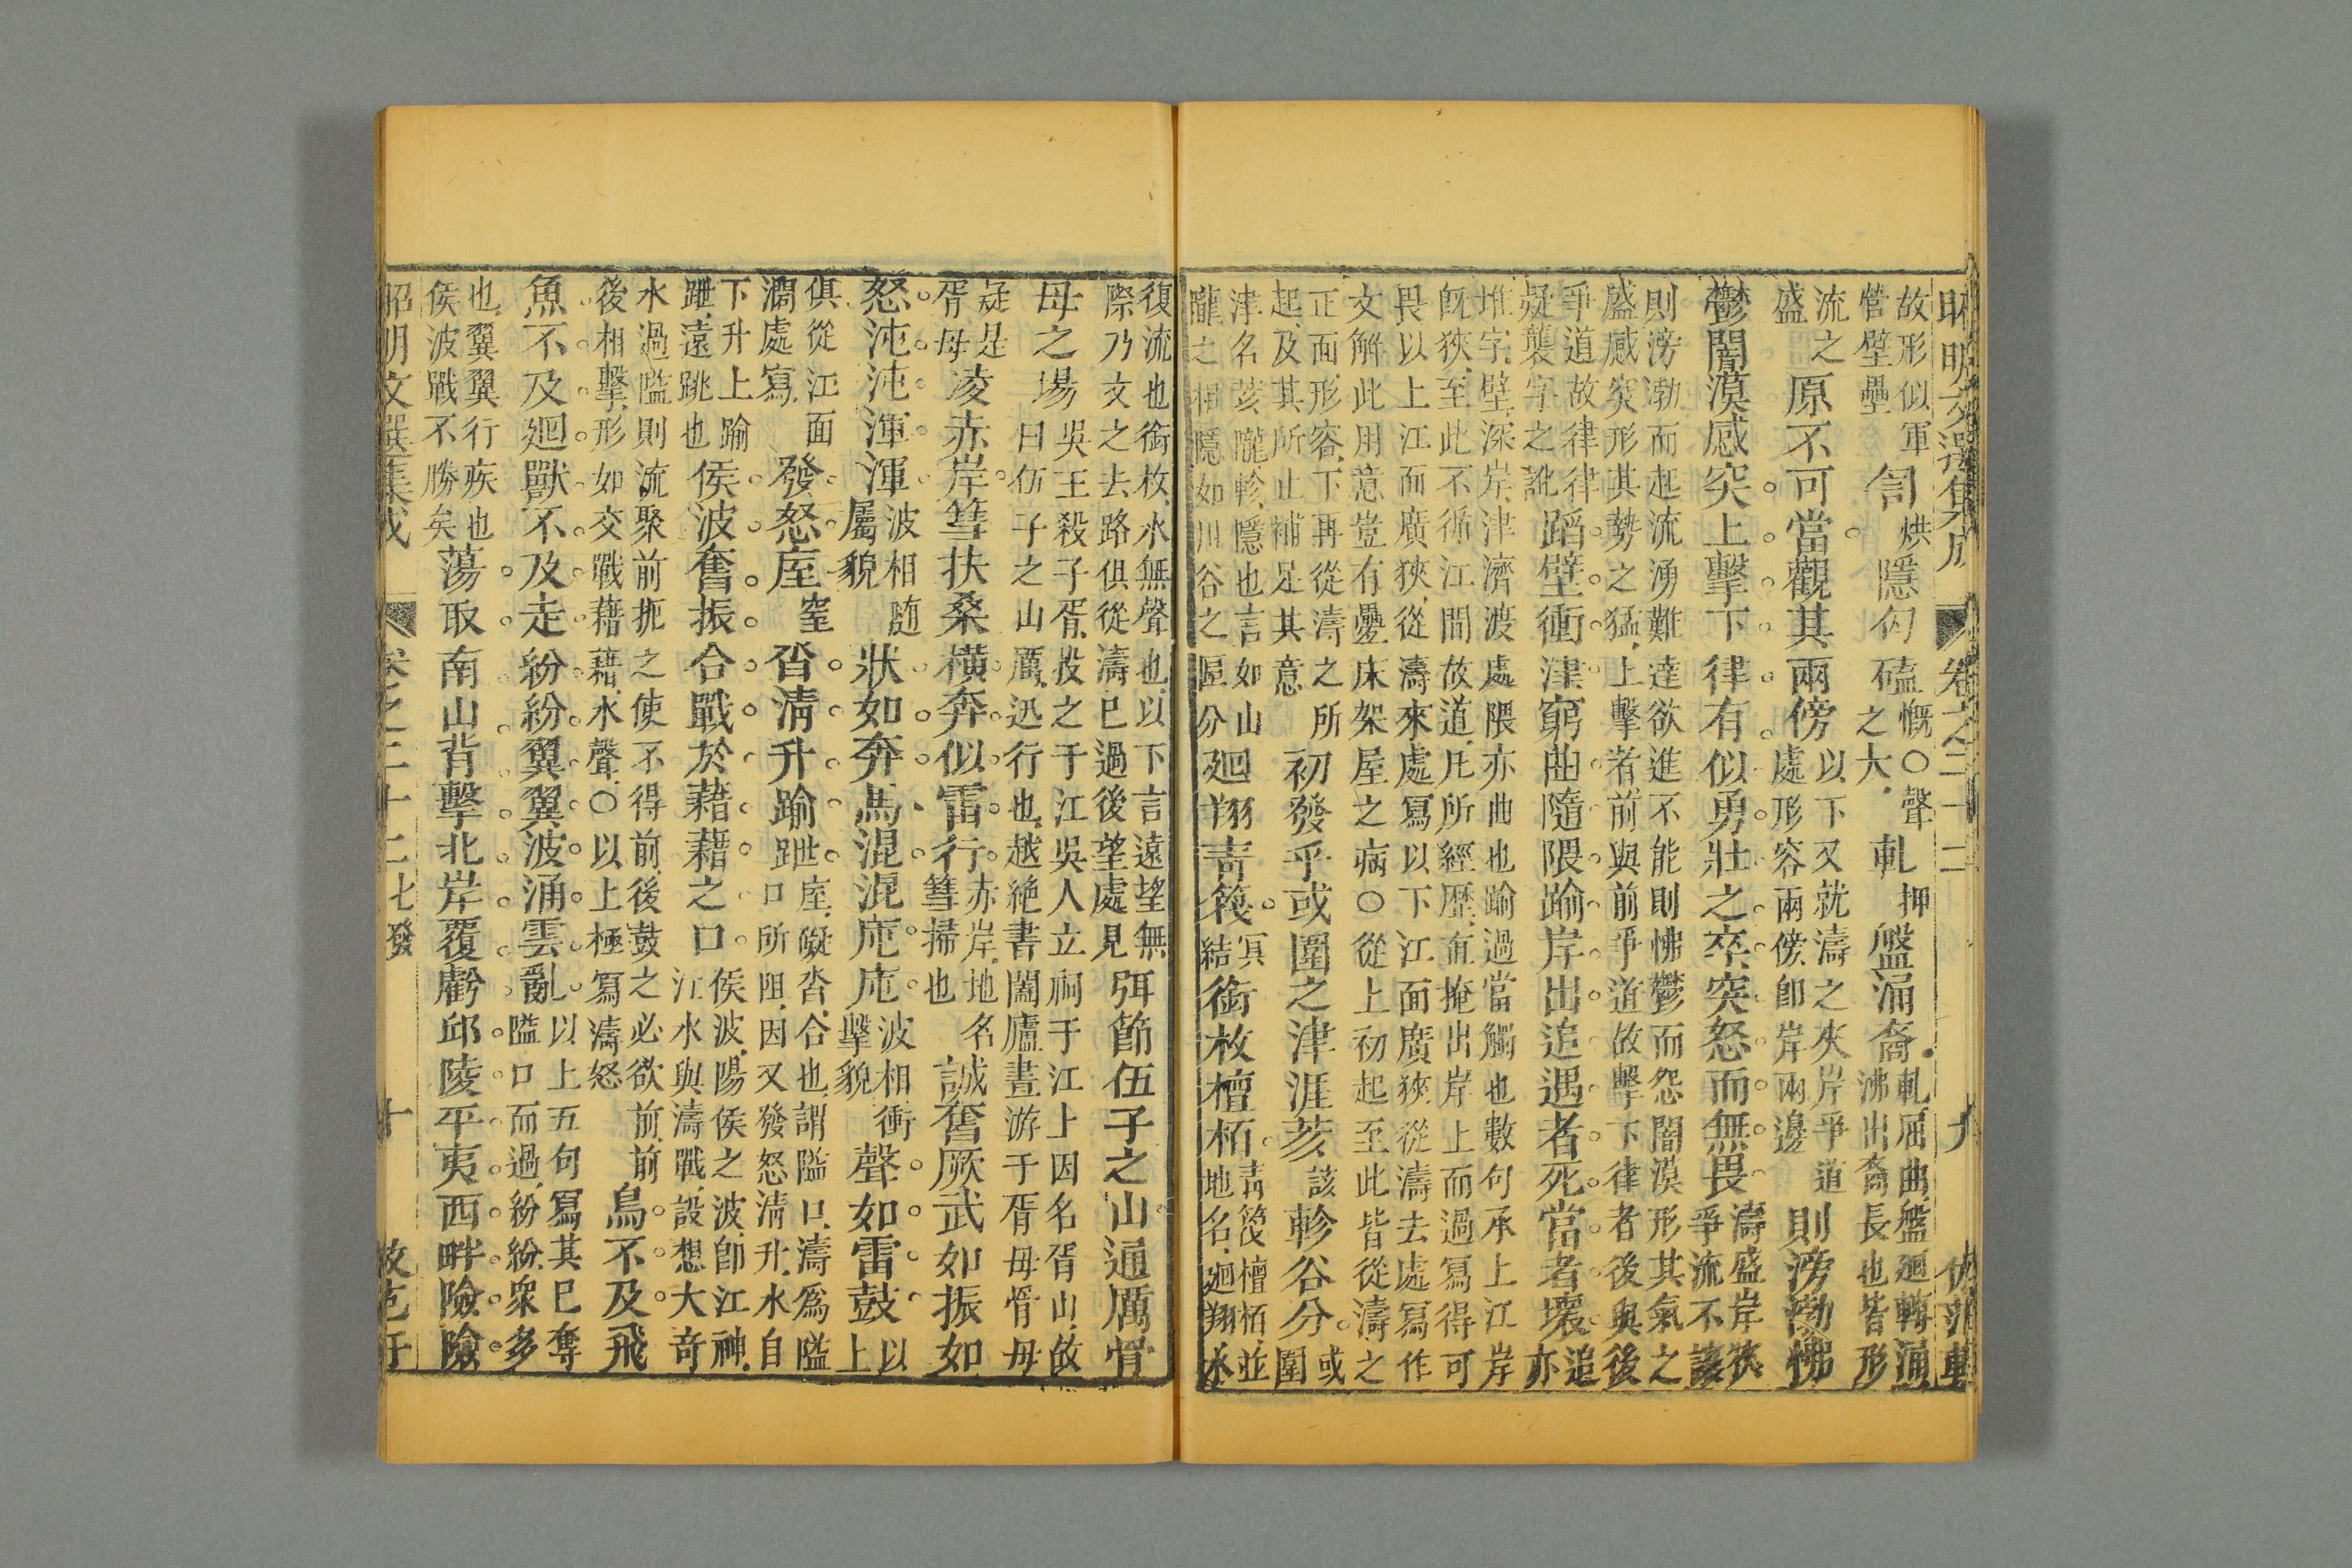 昭明文選集成　卷之三十二　九　仿范軒
故形似軍
營壁壘
訇烘隱匈磕
慨○聲
之大
軋押盤涌裔
軋屈曲盤廻轉涌
沸出裔長也皆形
流之
盛
原不可當觀其兩傍
以下又就濤之夾岸爭道
處形容兩傍卽岸兩邊
則滂渤怫
鬱闇漠感突上擊下律有似勇壯之卒突怒而無畏
濤盛岸狹
爭流不該
則滂渤而起流湧難達欲進不能則怫鬱而怨闇漠形其氣之
盛感突形其勢之猛上擊者前與前爭道故擊下律者後與後
爭道故律律
疑襲字之訛
蹈壁衝津窮曲隨隈踰岸出追遇者死當者壞
追
亦
堆字壁深岸津濟渡處隈亦曲也踰過當觸也數句承上江岸
旣狹至此不循江間故道凡所經歷直掩出岸上而過寫得可
畏以上江而廣狹從濤來處寫以下江面廣狹從濤去處寫作
文解此用意豈有疊床架屋之病○從上初起至此皆從濤之
正面形容下再從濤之所
起及其所止補足其意
初發乎或圍之津涯荄該軫谷分
或
圍
津名荄隴軫隱也言如山
隴之相隱如川谷之區分
廻翔靑篾
冥
結
銜枚檀栢
靑篾檀栢並
地名廻翔水
復流也銜枚水無聲也以下言遠望無
際乃文之去路俱從濤已過後望處見
弭節伍子之山通厲骨
母之場
吳王殺子胥投之于江吳人立祠于江上因名胥山故
曰伍子之山厲迅行也越絶書闔廬晝游于胥母骨母
疑是
胥母
凌赤岸篲扶桑橫奔似雷行
赤岸地名
篲掃也
誠奮厥武如振如
怒沌沌渾渾
波相隨
屬貌
狀如奔馬混混庉庉
波相衝
擊貌
聲如雷鼓
以
上
俱從江面
濶處寫
發怒庢窒沓淸升踰跇
庢礙沓合也謂隘口濤爲隘
口所阻因又發怒淸升水自
下升上踰
跇遠跳也
侯波奮振合戰於藉藉之口
侯波陽侯之波卽江神
江水與濤戰設想大奇
水過隘則流聚前扼之使不得前後鼓之必欲前前
後相擊形如交戰藉藉水聲○以上極寫濤怒
鳥不及飛
魚不及廻獸不及走紛紛翼翼波涌雲亂
以上五句寫其已奪
隘口而過紛紛衆多
也翼翼行疾也
侯波戰不勝矣
蕩取南山背擊北岸覆虧邱陵平夷西畔險險
昭明文選集成　卷之三十二七發　十